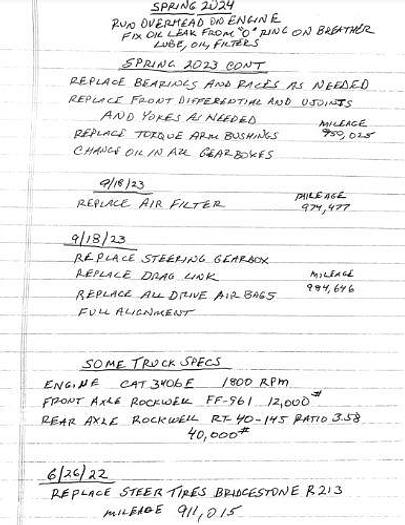 SPRING 2024
RUN OVERHEAD ON ENGINE
FIX OIL LEAK FROM "O" RING ON BREATHER
LUBE, OIL, FILTERS
SPRING 2023 CONT
REPLACE BEARINGS AND RACES AS NEEDED
REPLACE FRONT DIFFERENTIAL AND UJOINTS
AND YOKES AS NEEDED
MILEAGE
REPLACE TORQUE ARM BUSHINGS 950,025
CHANGE OIL IN ALL GEARBOXES
9/18/23
MILEAGE
REPLACE AIR FILTER 974,477
9/18/23
REPLACE STEERING GEARBOX
REPLACE DRAG LINK MILEAGE
REPLACE ALL DRIVE AIR BAGS 984,646
FULL ALIGNMENT
SOME TRUCK SPECS
ENGINE CAT 3406E 1800 RPM
FRONT AXLE ROCKWELL FF-961 12,000#
REAR AXLE ROCKWELL RT-40-145 RATIO 3.58
40,000#
6/26/22
REPLACE STEER TIRES BRIDGESTONE R213
MILEAGE 911,015